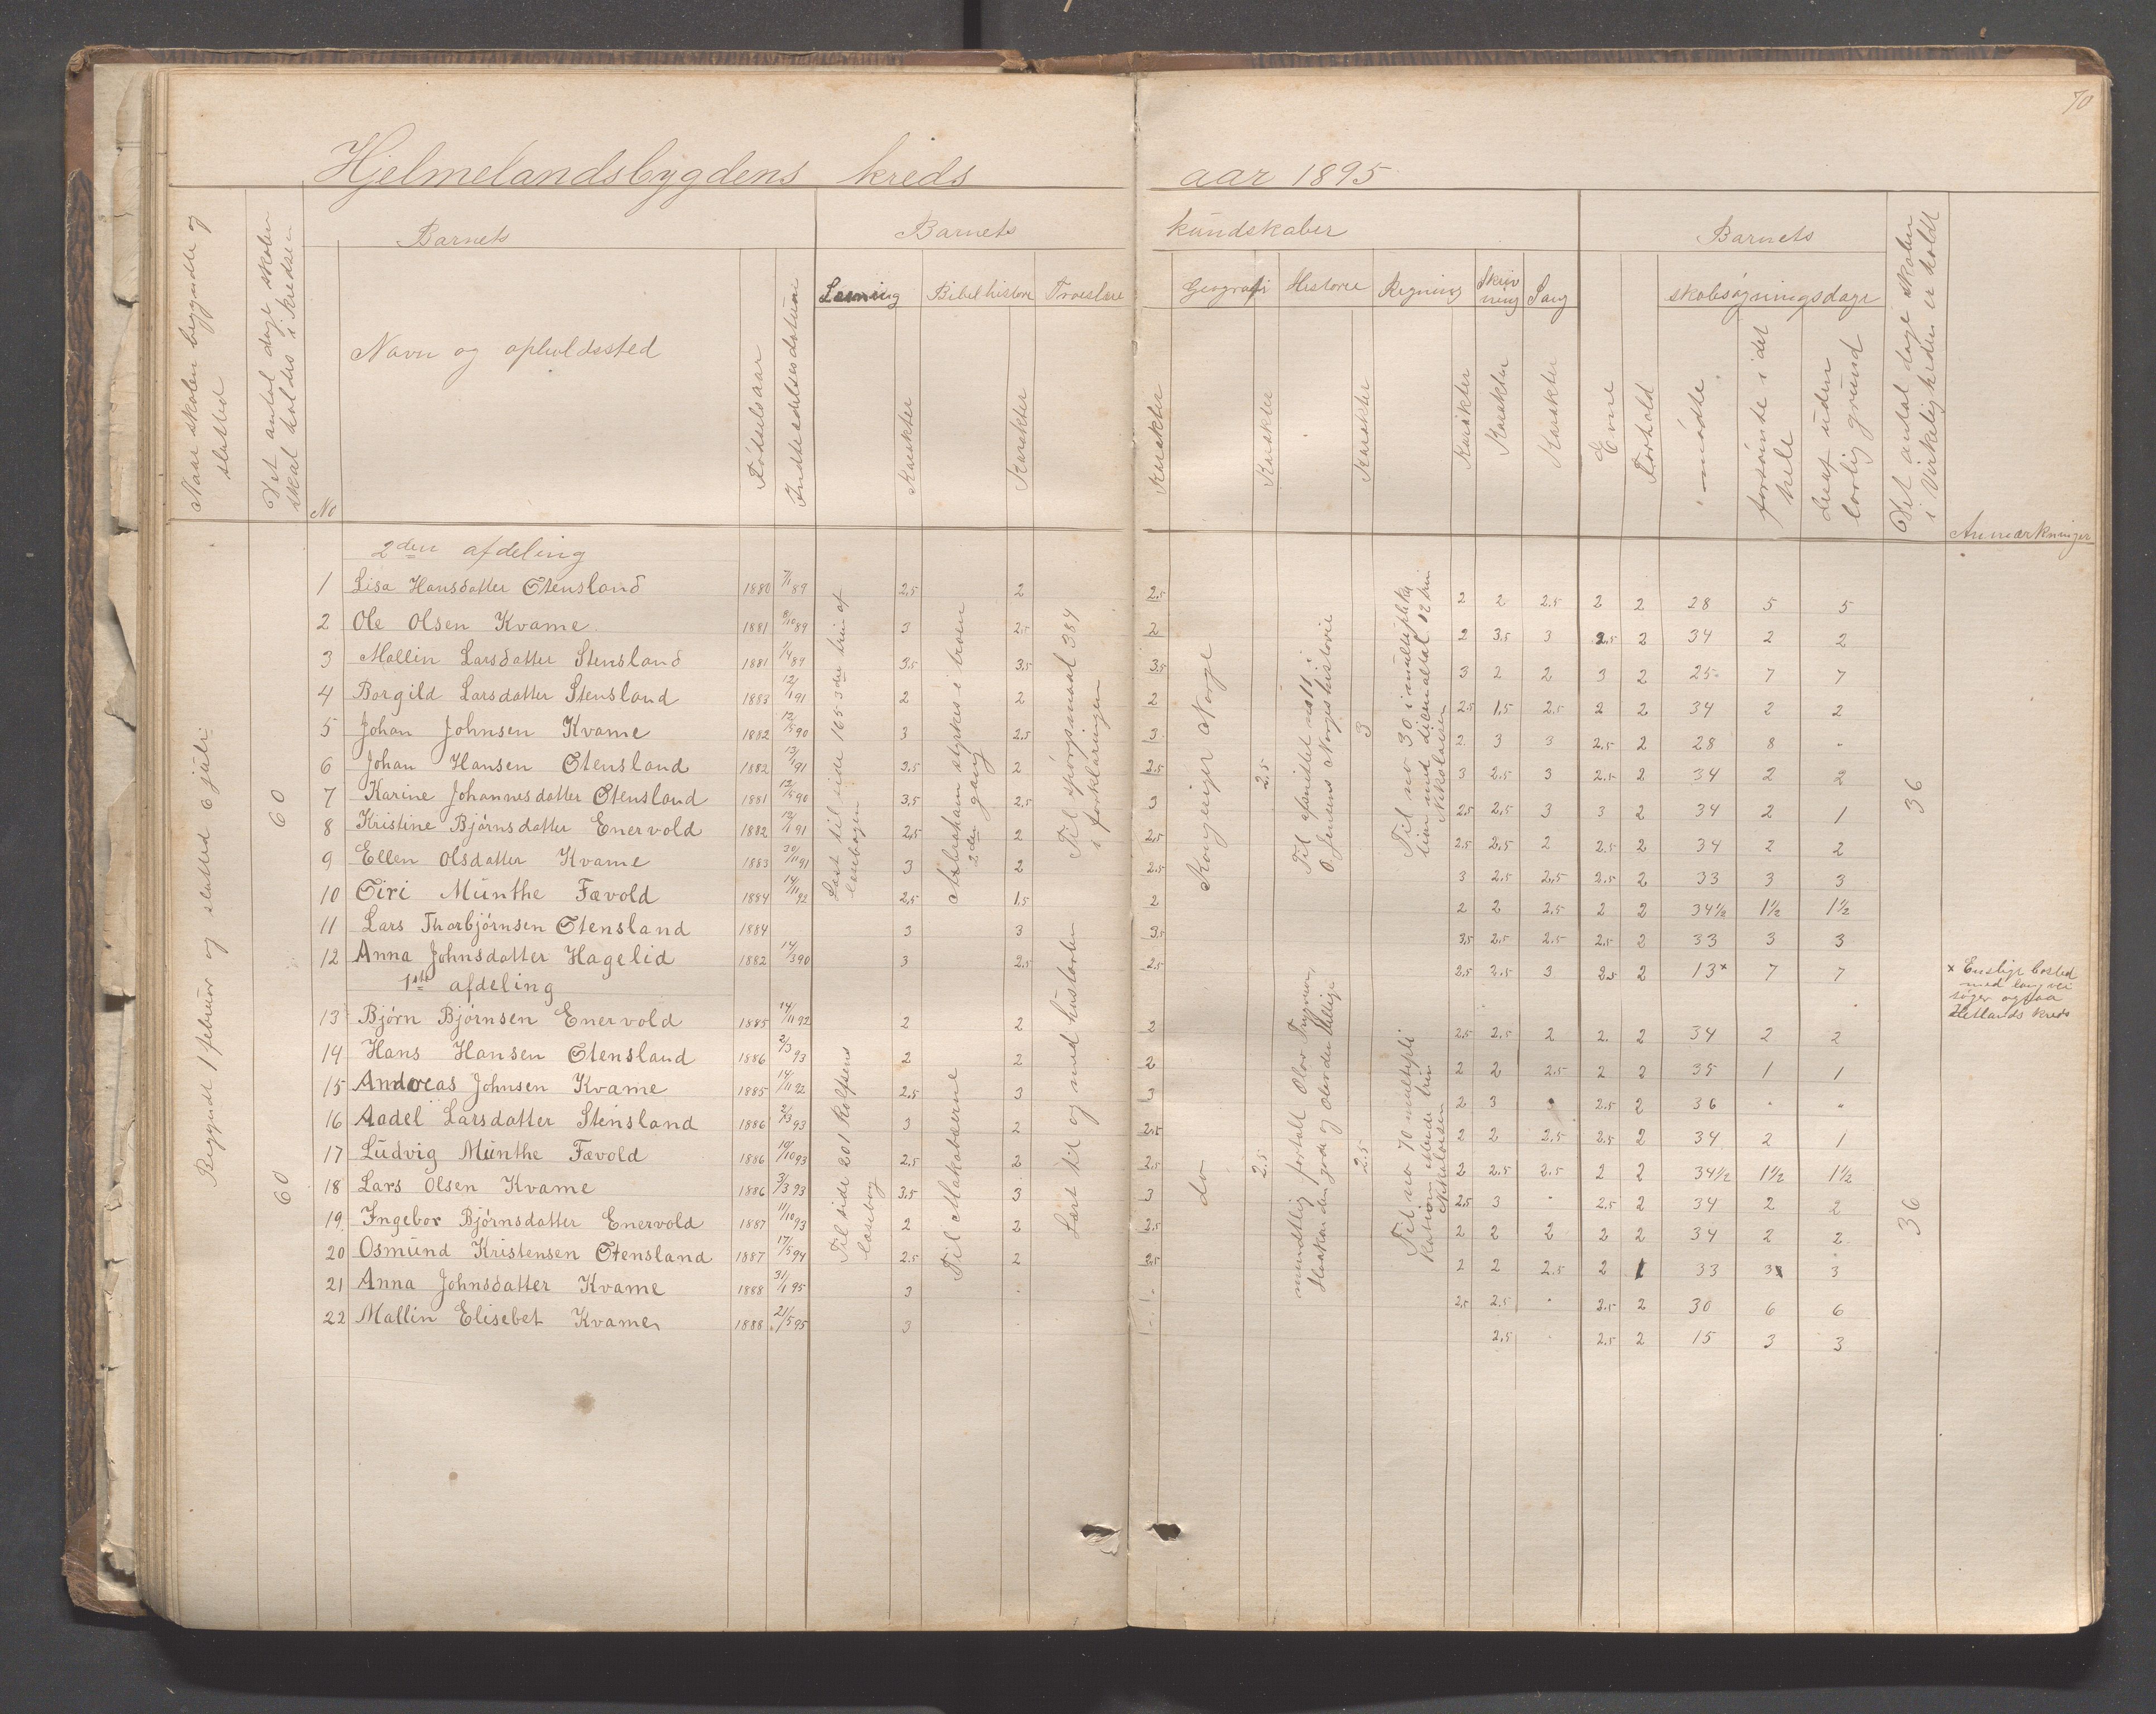 70
Hjelmelandsbygdens kreds aar 1895
Naar skolen begyndte og slutted
Det antal dage skolen skal holdes i kredsen
Barnets
Barnets kundskaber
Barnets
No
Navn og opholdssted
Födselsaar
Indtrædelsesdatum
Læsning
Karakter
Bibelhistorie
Karakter
Troeslære
Karakter
Geografi
Karakter
Historie
Karakter
Regning
Karakter
Skrivning
Karakter
Sang
Karakter
Evne
Forhold
skolesøgningsdage
mödte
forsömte i det hele
deraf uden lovlig grund
Det antal dage skolen i Virkeligheden er holdt
Anmærkninger
Begyndt 1 februar og slutted 6 juli
60
2den afdeling
1 Lisa Hansdatter Stensland 1880 7/1 89 2,5 2 2.5 2 2 2.5 2 2 28 5 5
2 Ole Olsen Kvame 1881 8/10 89 3 2.5 2 2 3.5 3 2.5 2 34 2 2
3 Mallin Larsdatter Stensland 1881 1/4 89 3.5 3.5 3.5 3 2 2 3 2 25 7 7
4 Borgild Larsdatter Stensland 1883 12/1 91 2 2 2 2.5 1.5 2.5 2 2 34 2 2
5 Johan Johnsen Kvame 1882 12/5 90 3 2.5 3 2 3 3 2.5 2 28 8 "
6 Johan Hansen Stensland 1882 13/1 91 3.5 2 2.5 3 2.5 3 2.5 2 34 2 2
7 Karine Johannesdatter Stensland 1881 12/5 90 3,5 2,5 3 2.5 2.5 3 3 2 34 2 1
8 Kristine Björnsdatter Enervold 1882 12/1 91 2,5 2 2.5 2.5 2.5 2 2.5 2 34 2 2
9 Ellen Olsdatter Kvame 1883 20/11 91 3 2 2.5 3 2.5 2.5 2.5 2 33 3 3
10 Siri Munthe Fævold 1884 14/11 92 2,5 1,5 2 2 2 2.5 2 2 34½ 1½ 1½
11 Lars Thorbjörnsen Stensland 1884 3 3 3.5 3.5 2.5 2.5 2.5 2 33 3 3
12 Anna Johnsdatter Hagelid 1882 14/3 90 3 2.5 2.5 2.5 2.5 3 2.5 2 13x 7 7
Læst til side 165 3die trin af læsebogen
Abraham styrkes i troen 2den gang
Til spörgsmaal 384 i forklaringen
Kongeriget Norge
2.5
Til afsnittet no 11 i O. Jensens Norges historie
3
36
x Enslige bosted med lang vei söger ogsaa Hetlands kreds
1ste afdeling
60
13 Björn Björnsen Enervold 1885 14/11 92 2 2 2 2.5 2.5 2 2. 2 34 2 2
14 Hans Hansen Stensland 1886 2/3 93 2 2 2 2 2 2.5 2 2 35 1 1
15 Andreas Johnsen Kvame 1885 14/11 92 2,5 3 3 2 3 • 2.5 2 36 " "
16 Aadel Larsdatter Stensland 1886 2/3 93 3 2 2.5 2 2 2.5 2.5 2 34 2 1
17 Ludvig Munthe Fævold 1886 19/10 93 2,5 2 2.5 2 2.5 2.5 2 2 34½ 1½ 1½
18 Lars Olsen Kvame 1886 3/3 93 3.5 3 3 2.5 3 " 2.5 2 34 2 2
19 Ingebor Björnsdatter Enervold 1887 11/10 93 2 2 2.5 2 2 2 2 2 34 2 2
20 Osmund Kristensen Stensland 1887 17/5 94 2.5 2 2.5 2 2 2.5 2 1 33 3 3
21 Anna Johnsdatter Kvame 1888 31/1 95 3 2.5 2.5 " 2.5 2 30 6 6
22 Mallin Elisebet Kvame 1888 21/5 95 3 2.5 2.5 2 15 3 3
Til side 201 Rolfsens læsebog
Til Makabæerne
Læst til og med hustavlen
do
2.5
mundtlig fortalt Olav Trygvason, Haakon den gode og Olav den hellige
2.5
36